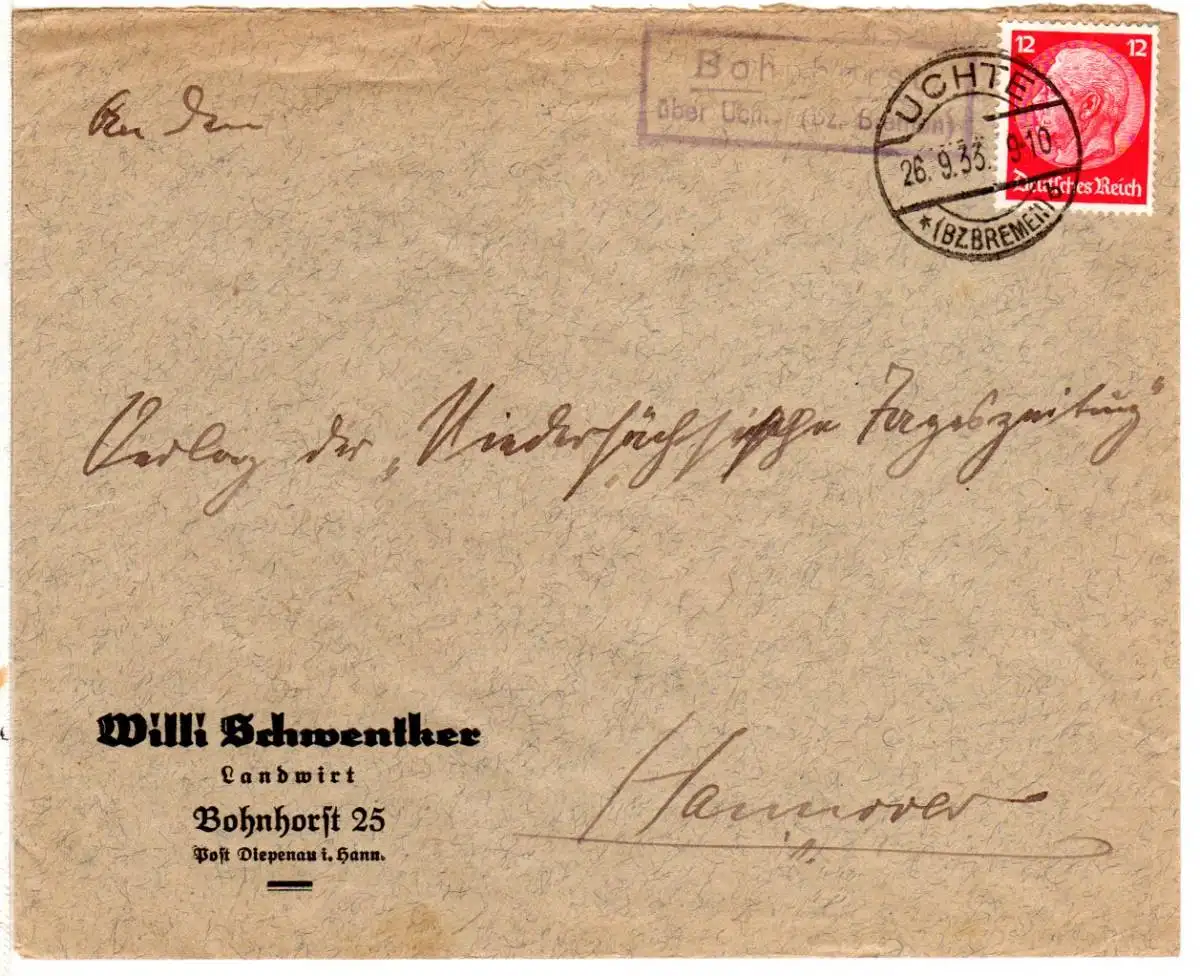 An den
Bohnhorst
über Uchte (Bz. Bremen)
UCHTE
26. 9.33. 9-10
* (BZ.BREMEN) b
12 12
Deutsches Reich
Verlag der „Niedersächsische Tageszeitung"
Hannover
Willi Schwentker
Landwirt
Bohnhorst 25
Post Diepenau i. Hann.